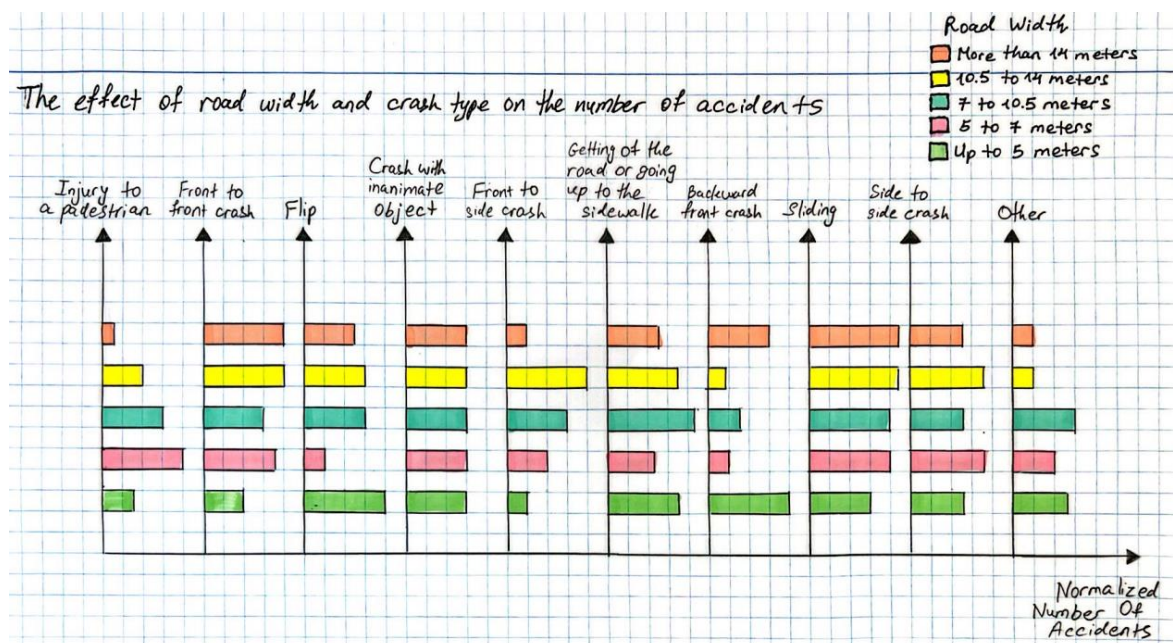 Road Width
More than 14 meters
10.5 to 14 meters
7 to 10.5 meters
5 to 7 meters
Up to 5 meters
The effect of road width and crash type on the number of accidents
Injury to
a padestrian
Front to
front crash
Flip
Crash with
inanimate
Object
Front to
side crash
Getting of the
road or going
up to the
sidewalk
Backward
front crash
Sliding
Side to
side crash
Other
Normalized
Number Of
Accidents